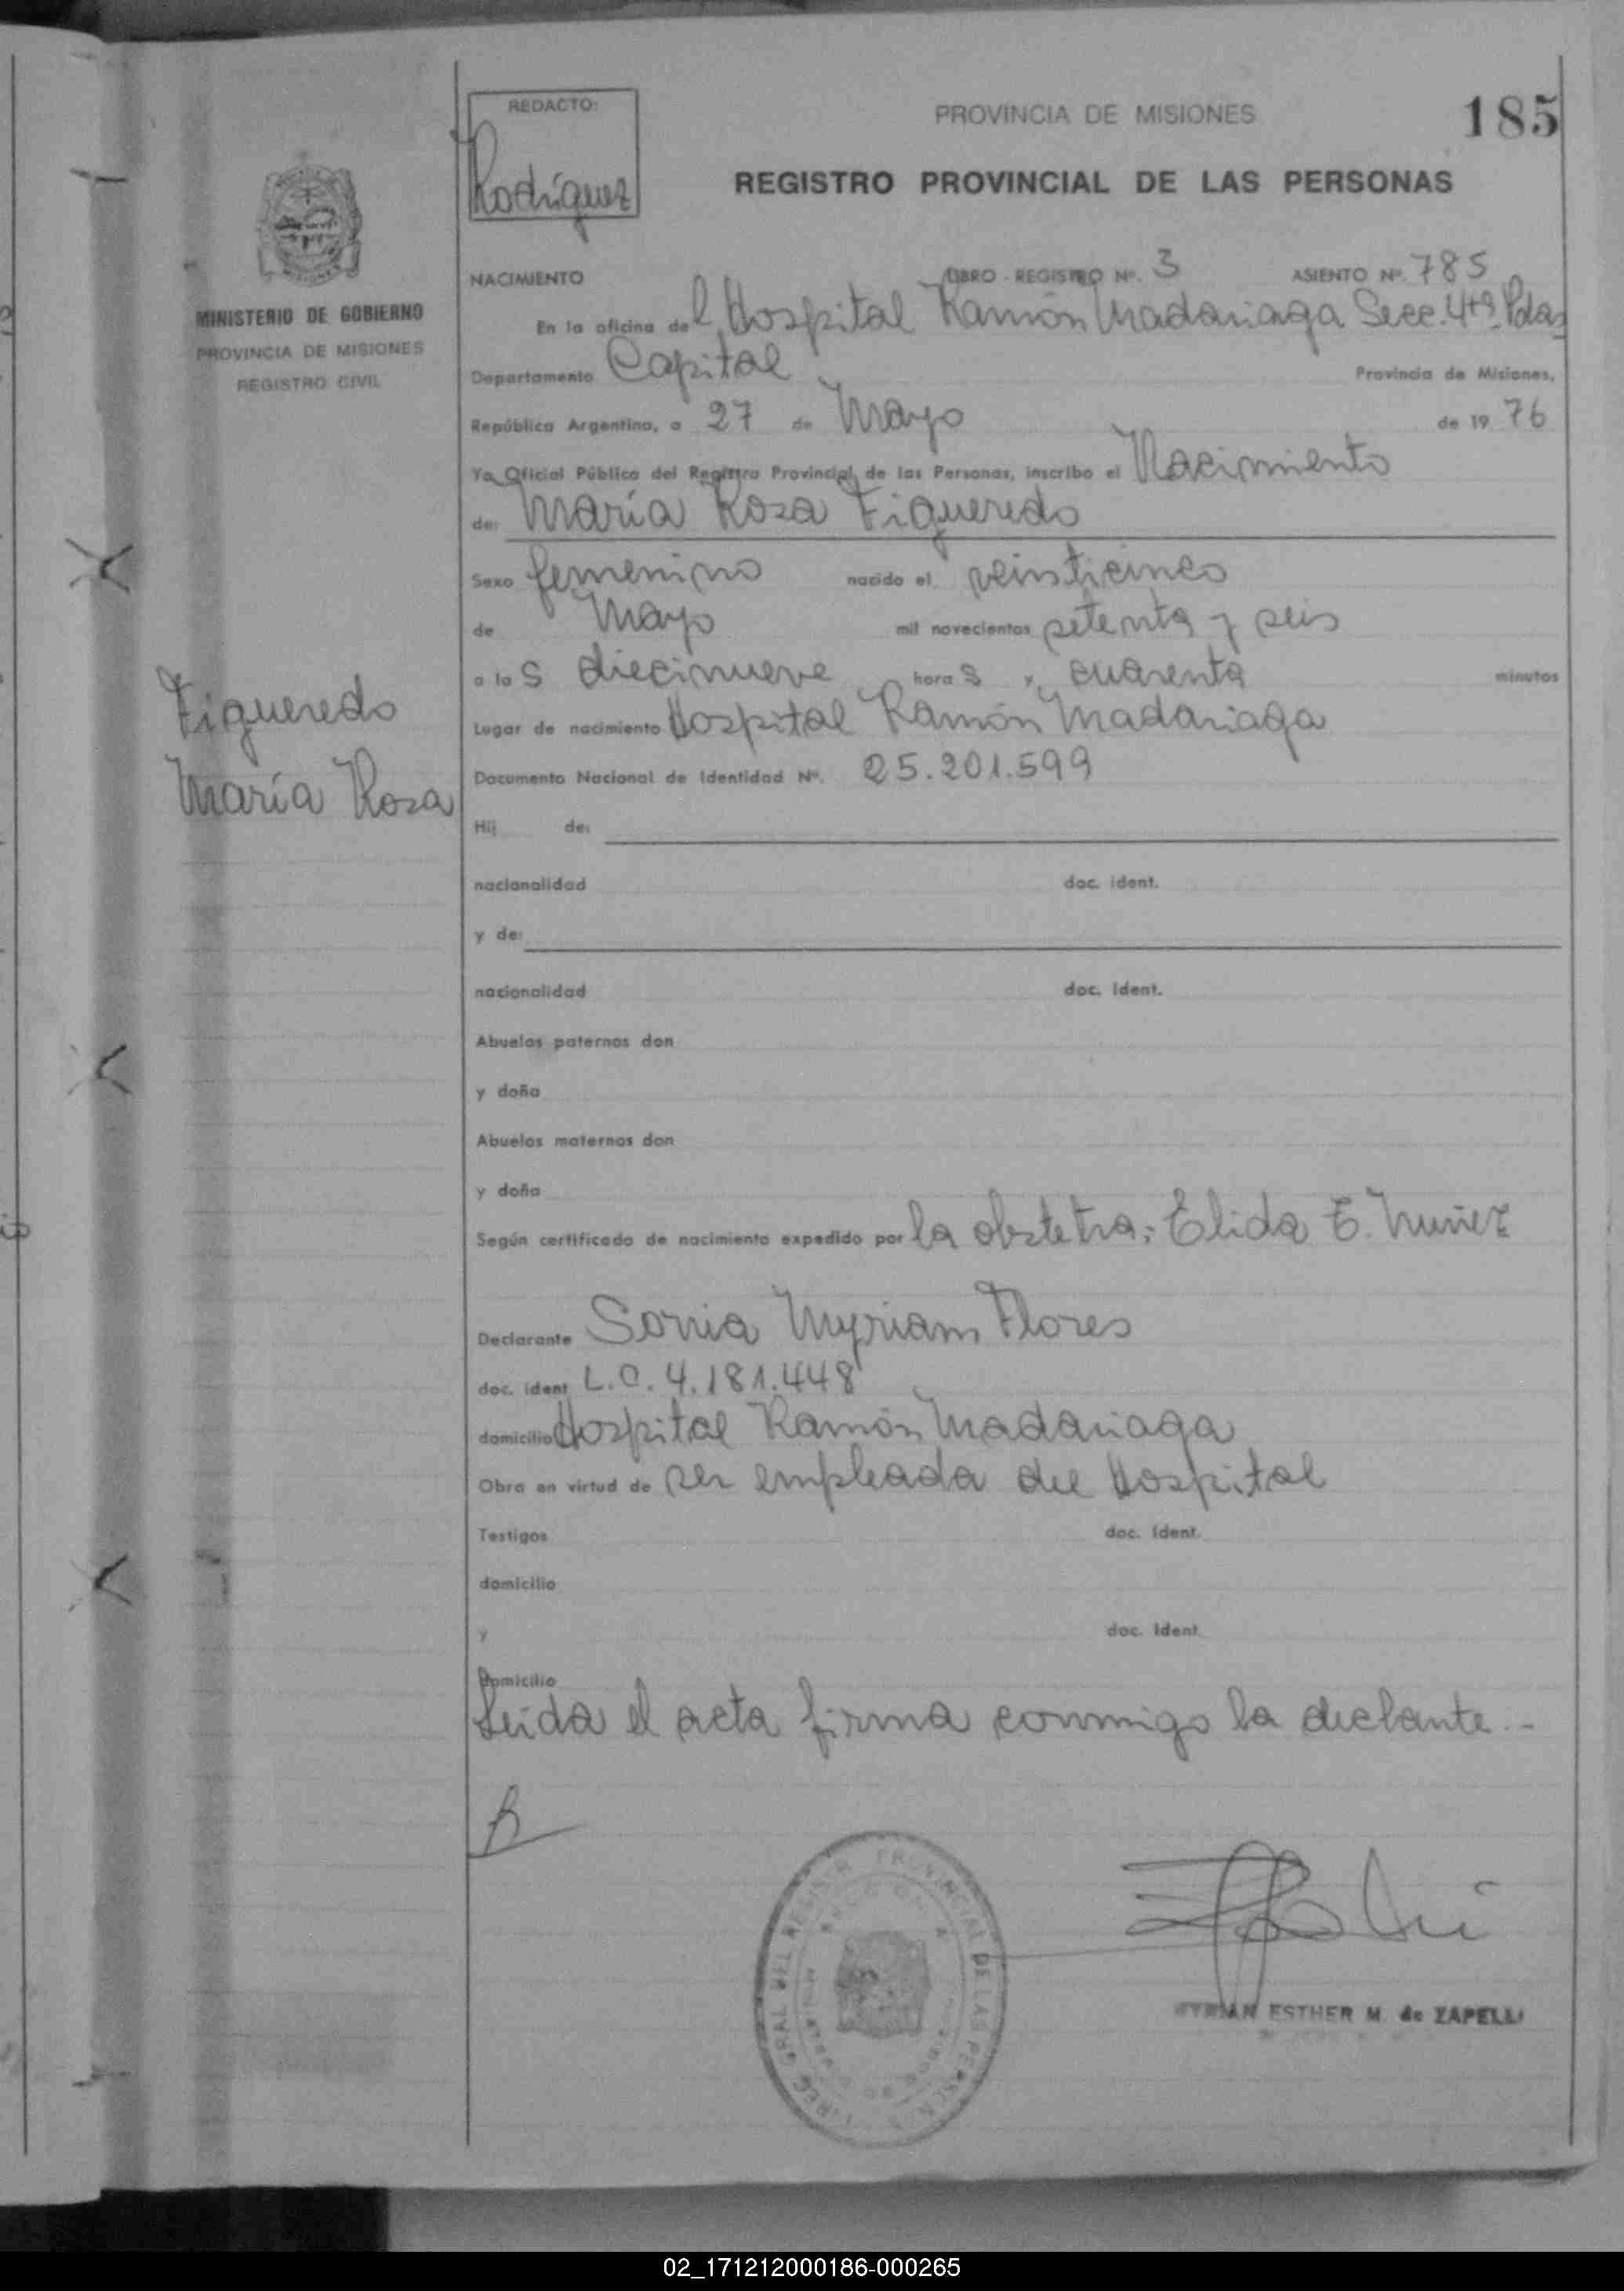 REDACTO:
Rodríguez
PROVINCIA DE MISIONES
185
REGISTRO PROVINCIAL DE LAS PERSONAS
MINISTERIO DE GOBIERNO
PROVINCIA DE MISIONES
REGISTRO CIVIL
NACIMIENTO LIBRO - REGISTRO Nº. 3 ASIENTO Nº. 785
En la oficina del Hospital Ramón Madariaga Secc. 4ta. Pdas
Departamento Capital Provincia de Misiones,
República Argentina, a 27 de Mayo de 19 76
Yo Oficial Público del Registro Provincial de las Personas, inscribo el Nacimiento
de: María Rosa Figueredo
Sexo femenino nacido el veinticinco
de Mayo mil novecientos setenta y seis
a las diecinueve horas y cuarenta minutos
Figueredo
María Rosa
Lugar de nacimiento Hospital Ramón Madariaga
Documento Nacional de Identidad Nº. 25.201.599
Hij de:
nacionalidad doc. ident.
y de:
nacionalidad doc. ident.
Abuelos paternos don
y doña
Abuelos maternos don
y doña
Según certificado de nacimiento expedido por la obstetra: Elida E. Nuñez
Declarante Sonia Myriam Flores
doc. ident. L.C. 4.181.448
domicilio Hospital Ramón Madariaga
Obra en virtud de ser empleada del Hospital
Testigos doc. ident.
domicilio
y doc. ident.
domicilio
Leida el acta firma conmigo la declante.-
REGISTRO PROVINCIAL DE LAS PERSONAS
ESTHER M. de ZAPELLI
02_171212000186-000265